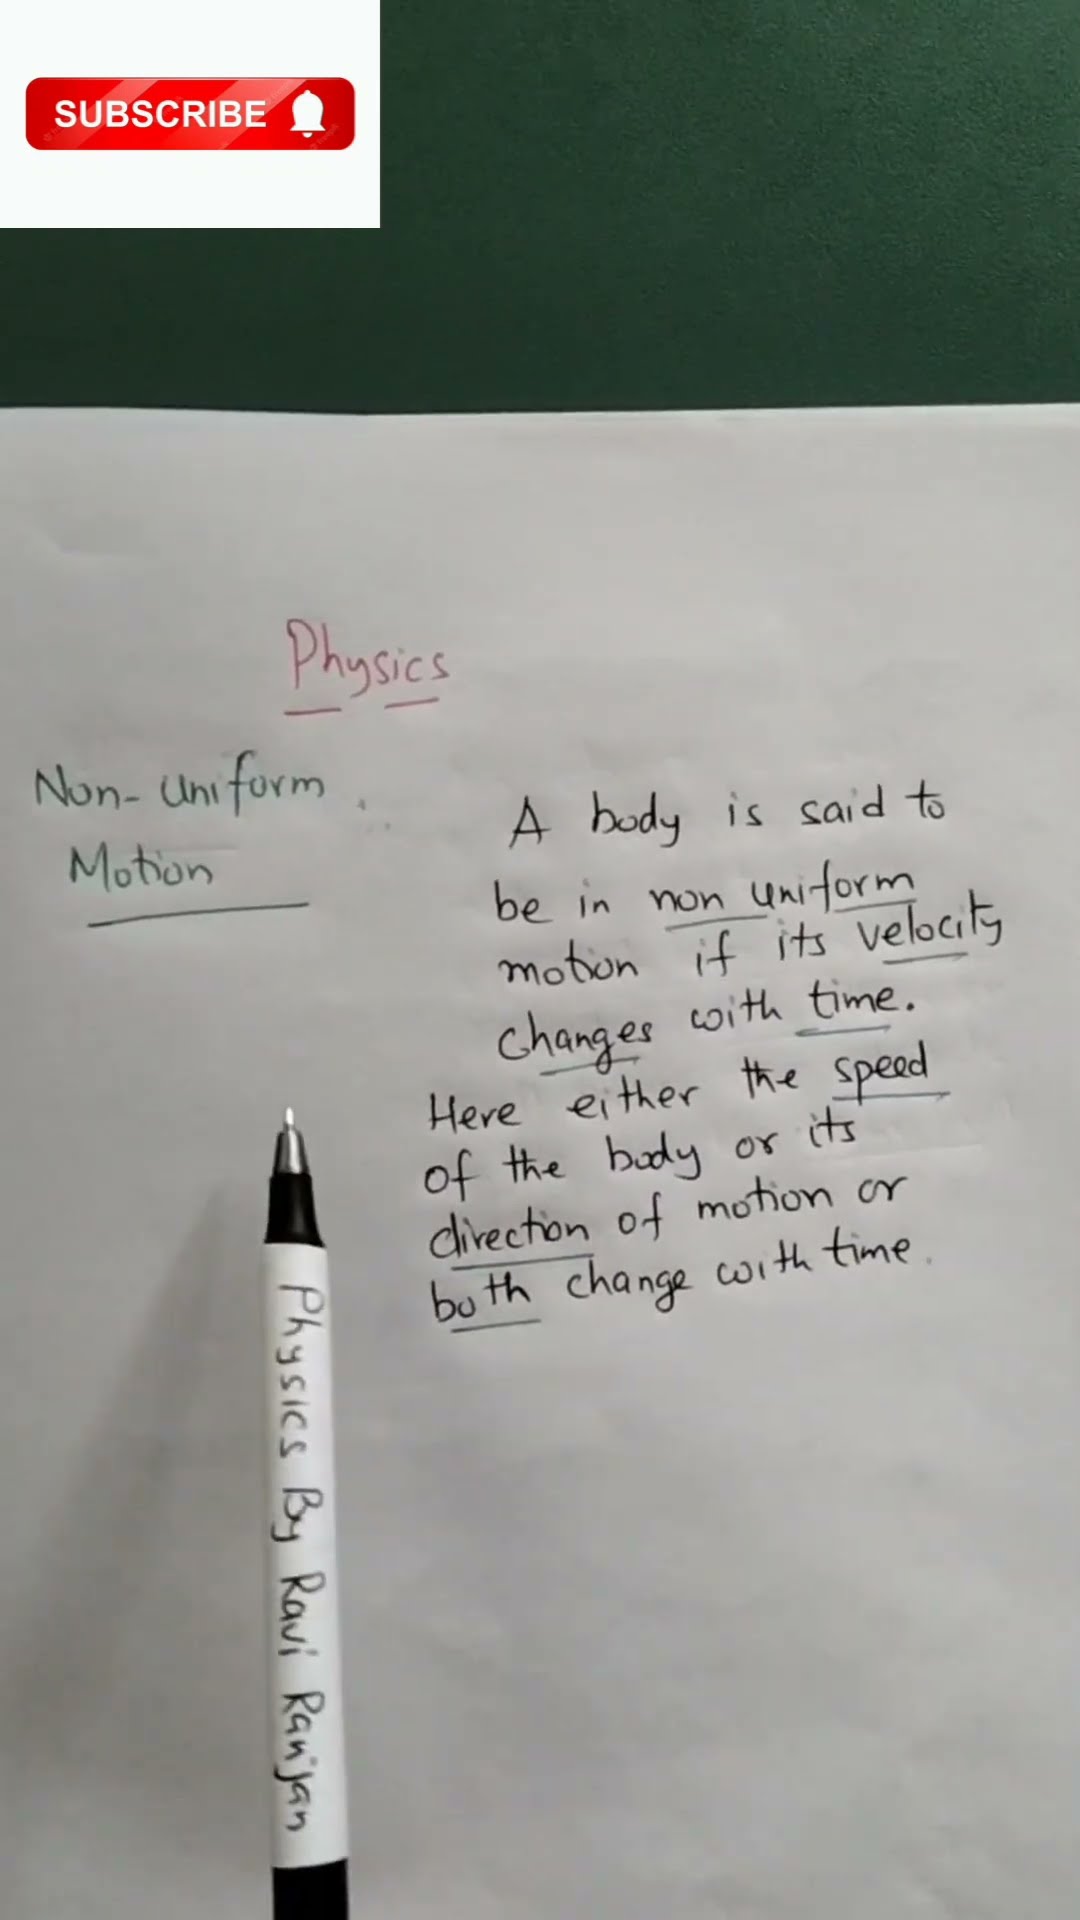 SUBSCRIBE
Physics
Non-uniform
Motion
A body is said to
be in non uniform
motion if its velocity
changes with time.
Here either the speed
of the body or its
direction of motion or
both change with time.
Physics By Ravi Ranjan